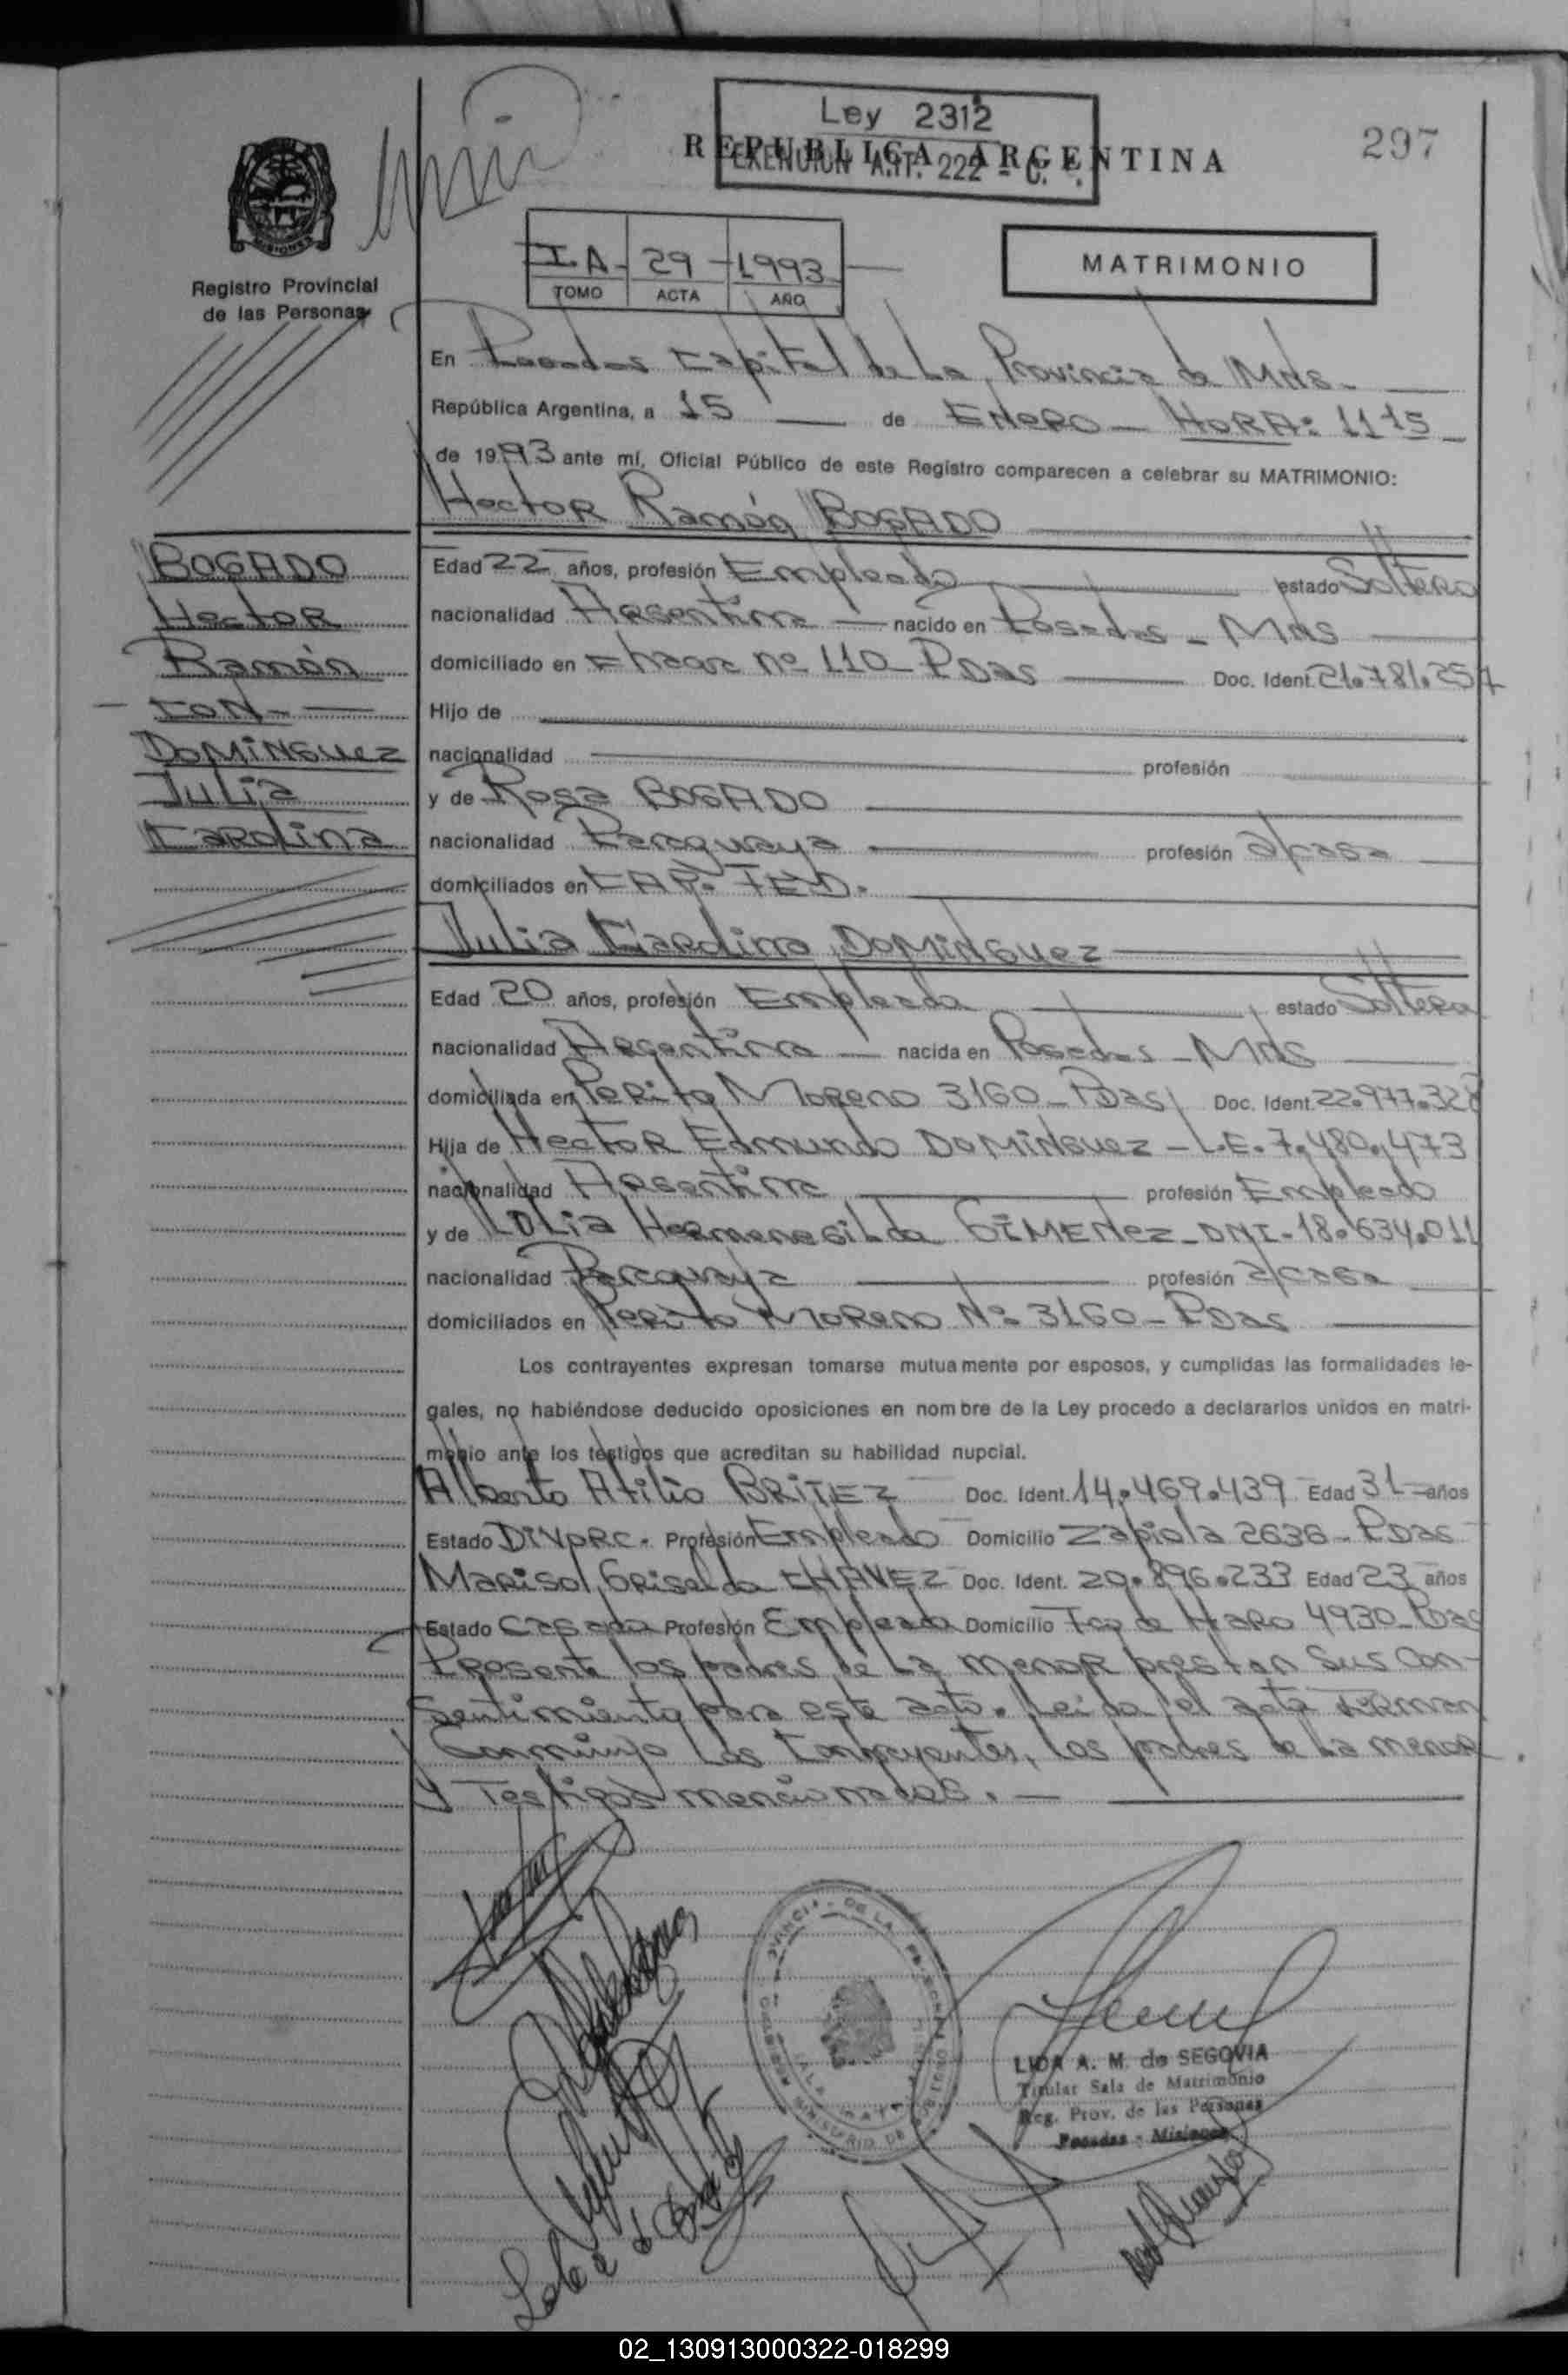 Ley 2312
EXENCION ART. 222 - C. .
REPUBLICA ARGENTINA
297
MISIONES
Registro Provincial
de las Personas
I.A - 29 - 1993
TOMO ACTA AÑO
MATRIMONIO
En Posadas Capital de La Provincia de Mnes.
República Argentina, a 15 de ENERO - HORA: 11 15
de 1993 ante mí, Oficial Público de este Registro comparecen a celebrar su MATRIMONIO:
Hector Ramón BOGADO
BOGADO
Hector
Ramón
- CON -
DOMINGUEZ
Julia
Carolina
Edad 22 años, profesión Empleado estado Soltero
nacionalidad Argentina nacido en Posadas - Mnes
domiciliado en Chacra Nº 110 - Pdas Doc. Ident. 21.781.257
Hijo de
nacionalidad profesión
y de Rosa BOGADO
nacionalidad Paraguaya profesión a/casa
domiciliados en CAP. FED.
Julia Carolina DOMINGUEZ
Edad 20 años, profesión Empleada estado Soltera
nacionalidad Argentina nacida en Posadas - Mnes
domiciliada en Perito Moreno 3160 - Pdas Doc. Ident. 22.977.328
Hija de Hector Edmundo DOMINGUEZ - L.E. 7.480.473
nacionalidad Argentina profesión Empleado
y de Lolia Hermenegilda GIMENEZ - DNI - 18.634.011
nacionalidad Paraguaya profesión a/casa
domiciliados en Perito Moreno Nº 3160 - Pdas
Los contrayentes expresan tomarse mutuamente por esposos, y cumplidas las formalidades le-
gales, no habiéndose deducido oposiciones en nombre de la Ley procedo a declararlos unidos en matri-
monio ante los testigos que acreditan su habilidad nupcial.
Alberto Atilio BRITEZ Doc. Ident. 14.469.439 Edad 31 años
Estado DIVORC. Profesión Empleado Domicilio Zapiola 2636 - Pdas
Marisol Griselda CHAVEZ Doc. Ident. 20.896.233 Edad 23 años
Estado Casada Profesión Empleada Domicilio Fco de Haro 4930 - Pdas
Presente los padres de La menor prestan Sus Con-
sentimiento para este acto. Leida el acta firman
Conmigo Los Contrayentes, los padres de La menor
y Testigos mencionados.
LIDA A. M. de SEGOVIA
Titular Sala de Matrimonio
Reg. Prov. de las Personas
Posadas - Misiones
02_130913000322-018299